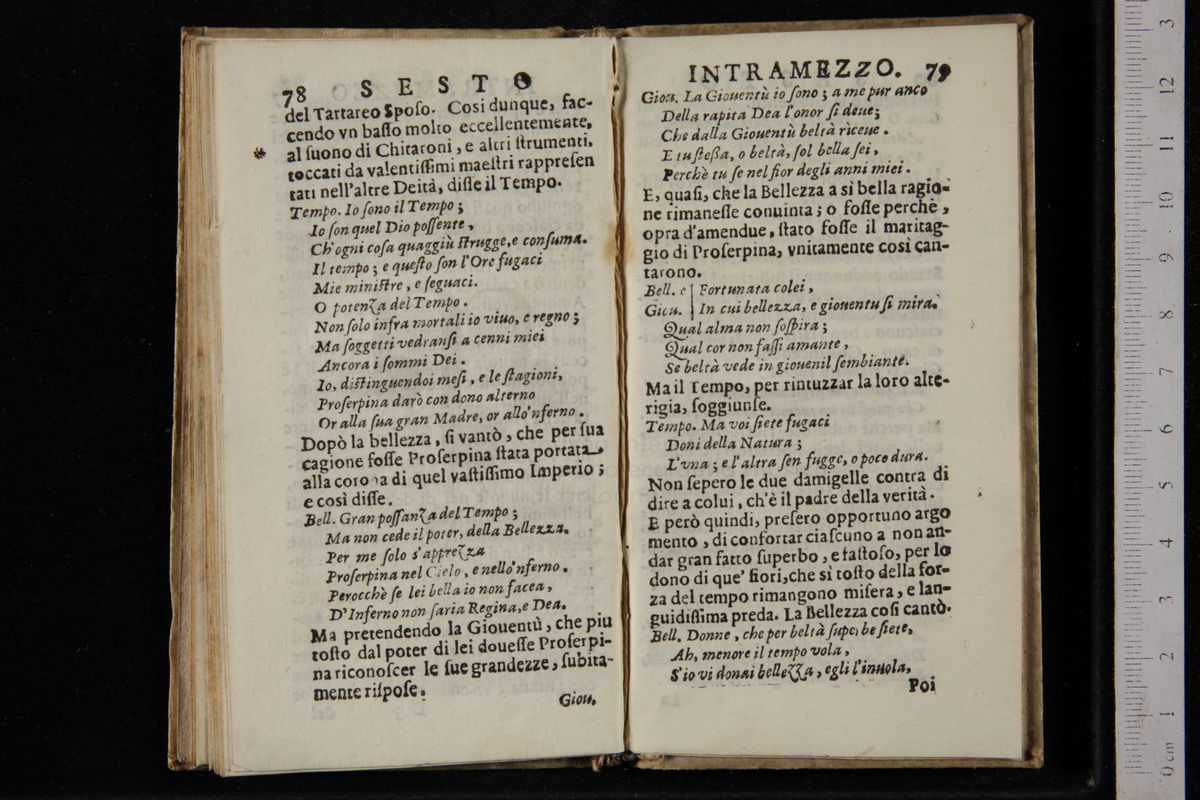 78 SESTO
del Tartareo Sposo. Cosi dunque, fac-
cendo vn ballo molto eccellentemente,
al suono di Chitaroni, e altri strumenti,
toccati da valentissimi maestri rappresen
tati nell'altre Deità, disse il Tempo.
Tempo. Io sono il Tempo;
Io son quel Dio possente,
Ch'ogni cosa quaggiù strugge, e consuma.
Il tempo; e questo son l'Ore fugaci
Mie ministre, e seguaci.
O potenza del Tempo.
Non solo infra mortali io viuo, e regno;
Ma soggetti vedransi a cenni miei
Ancora i sommi Dei.
Io, distinguendo i mesi, e le stagioni,
Proserpina darò con dono alterno
Or alla sua gran Madre, or allo'nferno.
Dopò la bellezza, si vantò, che per sua
cagione fosse Proserpina stata portata
alla corona di quel vastissimo Imperio;
e così disse.
Bell. Gran possanza del Tempo;
Ma non cede il poter, della Bellezza.
Per me solo s'apprezza
Proserpina nel Cielo, e nello'nferno.
Perocchè se lei bella io non facea,
D'Inferno non saria Regina, e Dea.
Ma pretendendo la Giouentù, che piu
tosto dal poter di lei douesse Proserpi-
na riconoscer le sue grandezze, subita-
mente rispose.
Giou.
INTRAMEZZO. 79
Giou. La Giouentù io sono; a me pur anco
Della rapita Dea l'onor si deue;
Che dalla Giouentù beltà riceue.
E tu stessa, o beltà, sol bella sei,
Perchè tu se nel fior degli anni miei.
E, quasi, che la Bellezza a sì bella ragio-
ne rimanesse conuinta; o fosse perchè,
opra d'amendue, stato fosse il maritag-
gio di Proserpina, vnitamente così can-
tarono.
Bell. e | Fortunata colei,
Giou. | In cui bellezza, e giouentu si mira.
Qual alma non sospira;
Qual cor non fassi amante,
Se beltà vede in giouenil sembiante.
Ma il Tempo, per rintuzzar la loro alte-
rigia, soggiunse.
Tempo. Ma voi siete fugaci
Doni della Natura;
L'vna; e l'altra sen fugge, o poco dura.
Non sepero le due damigelle contra di
dire a colui, ch'è il padre della verità.
E però quindi, presero opportuno argo
mento, di confortar ciascuno a non an-
dar gran fatto superbo, e fastoso, per lo
dono di que' fiori, che sì tosto della for-
za del tempo rimangono misera, e lan-
guidissima preda. La Bellezza così cantò.
Bell. Donne, che per beltà superbe siete,
Ah, menore il tempo vola,
S'io vi donai bellezza, egli l'inuola,
Poi